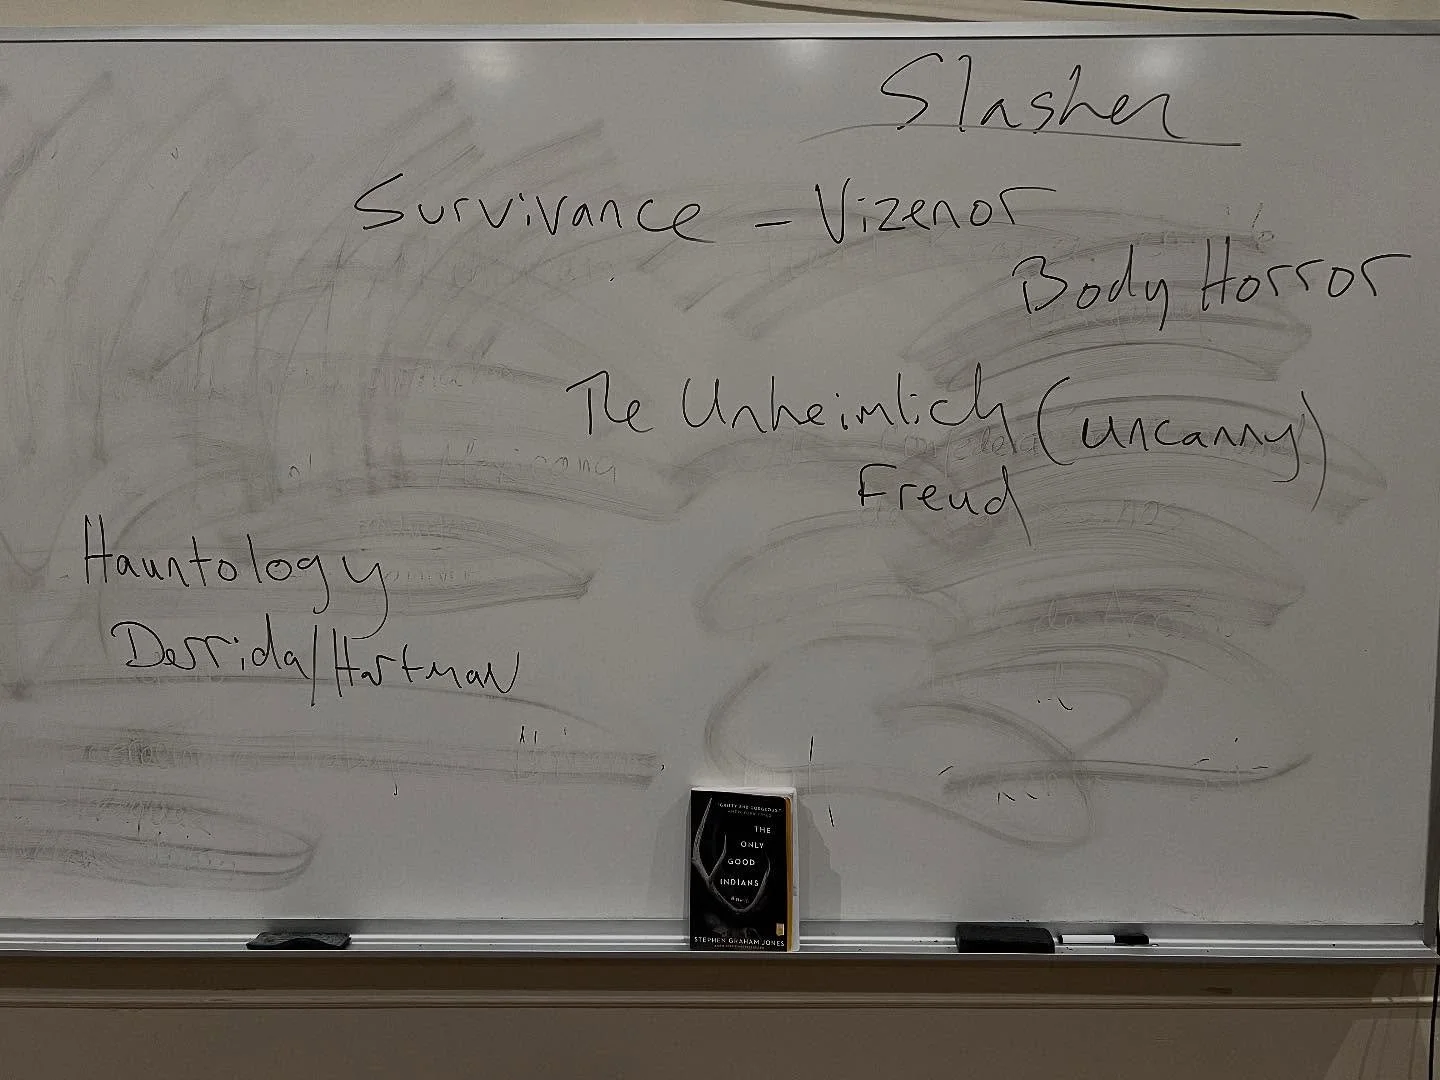 Slasher
Survivance – Vizenor
Body Horror
The Unheimlich (uncanny)
Freud
Hauntology
Derrida/Hartman
THE
ONLY
GOOD
INDIANS
STEPHEN GRAHAM JONES